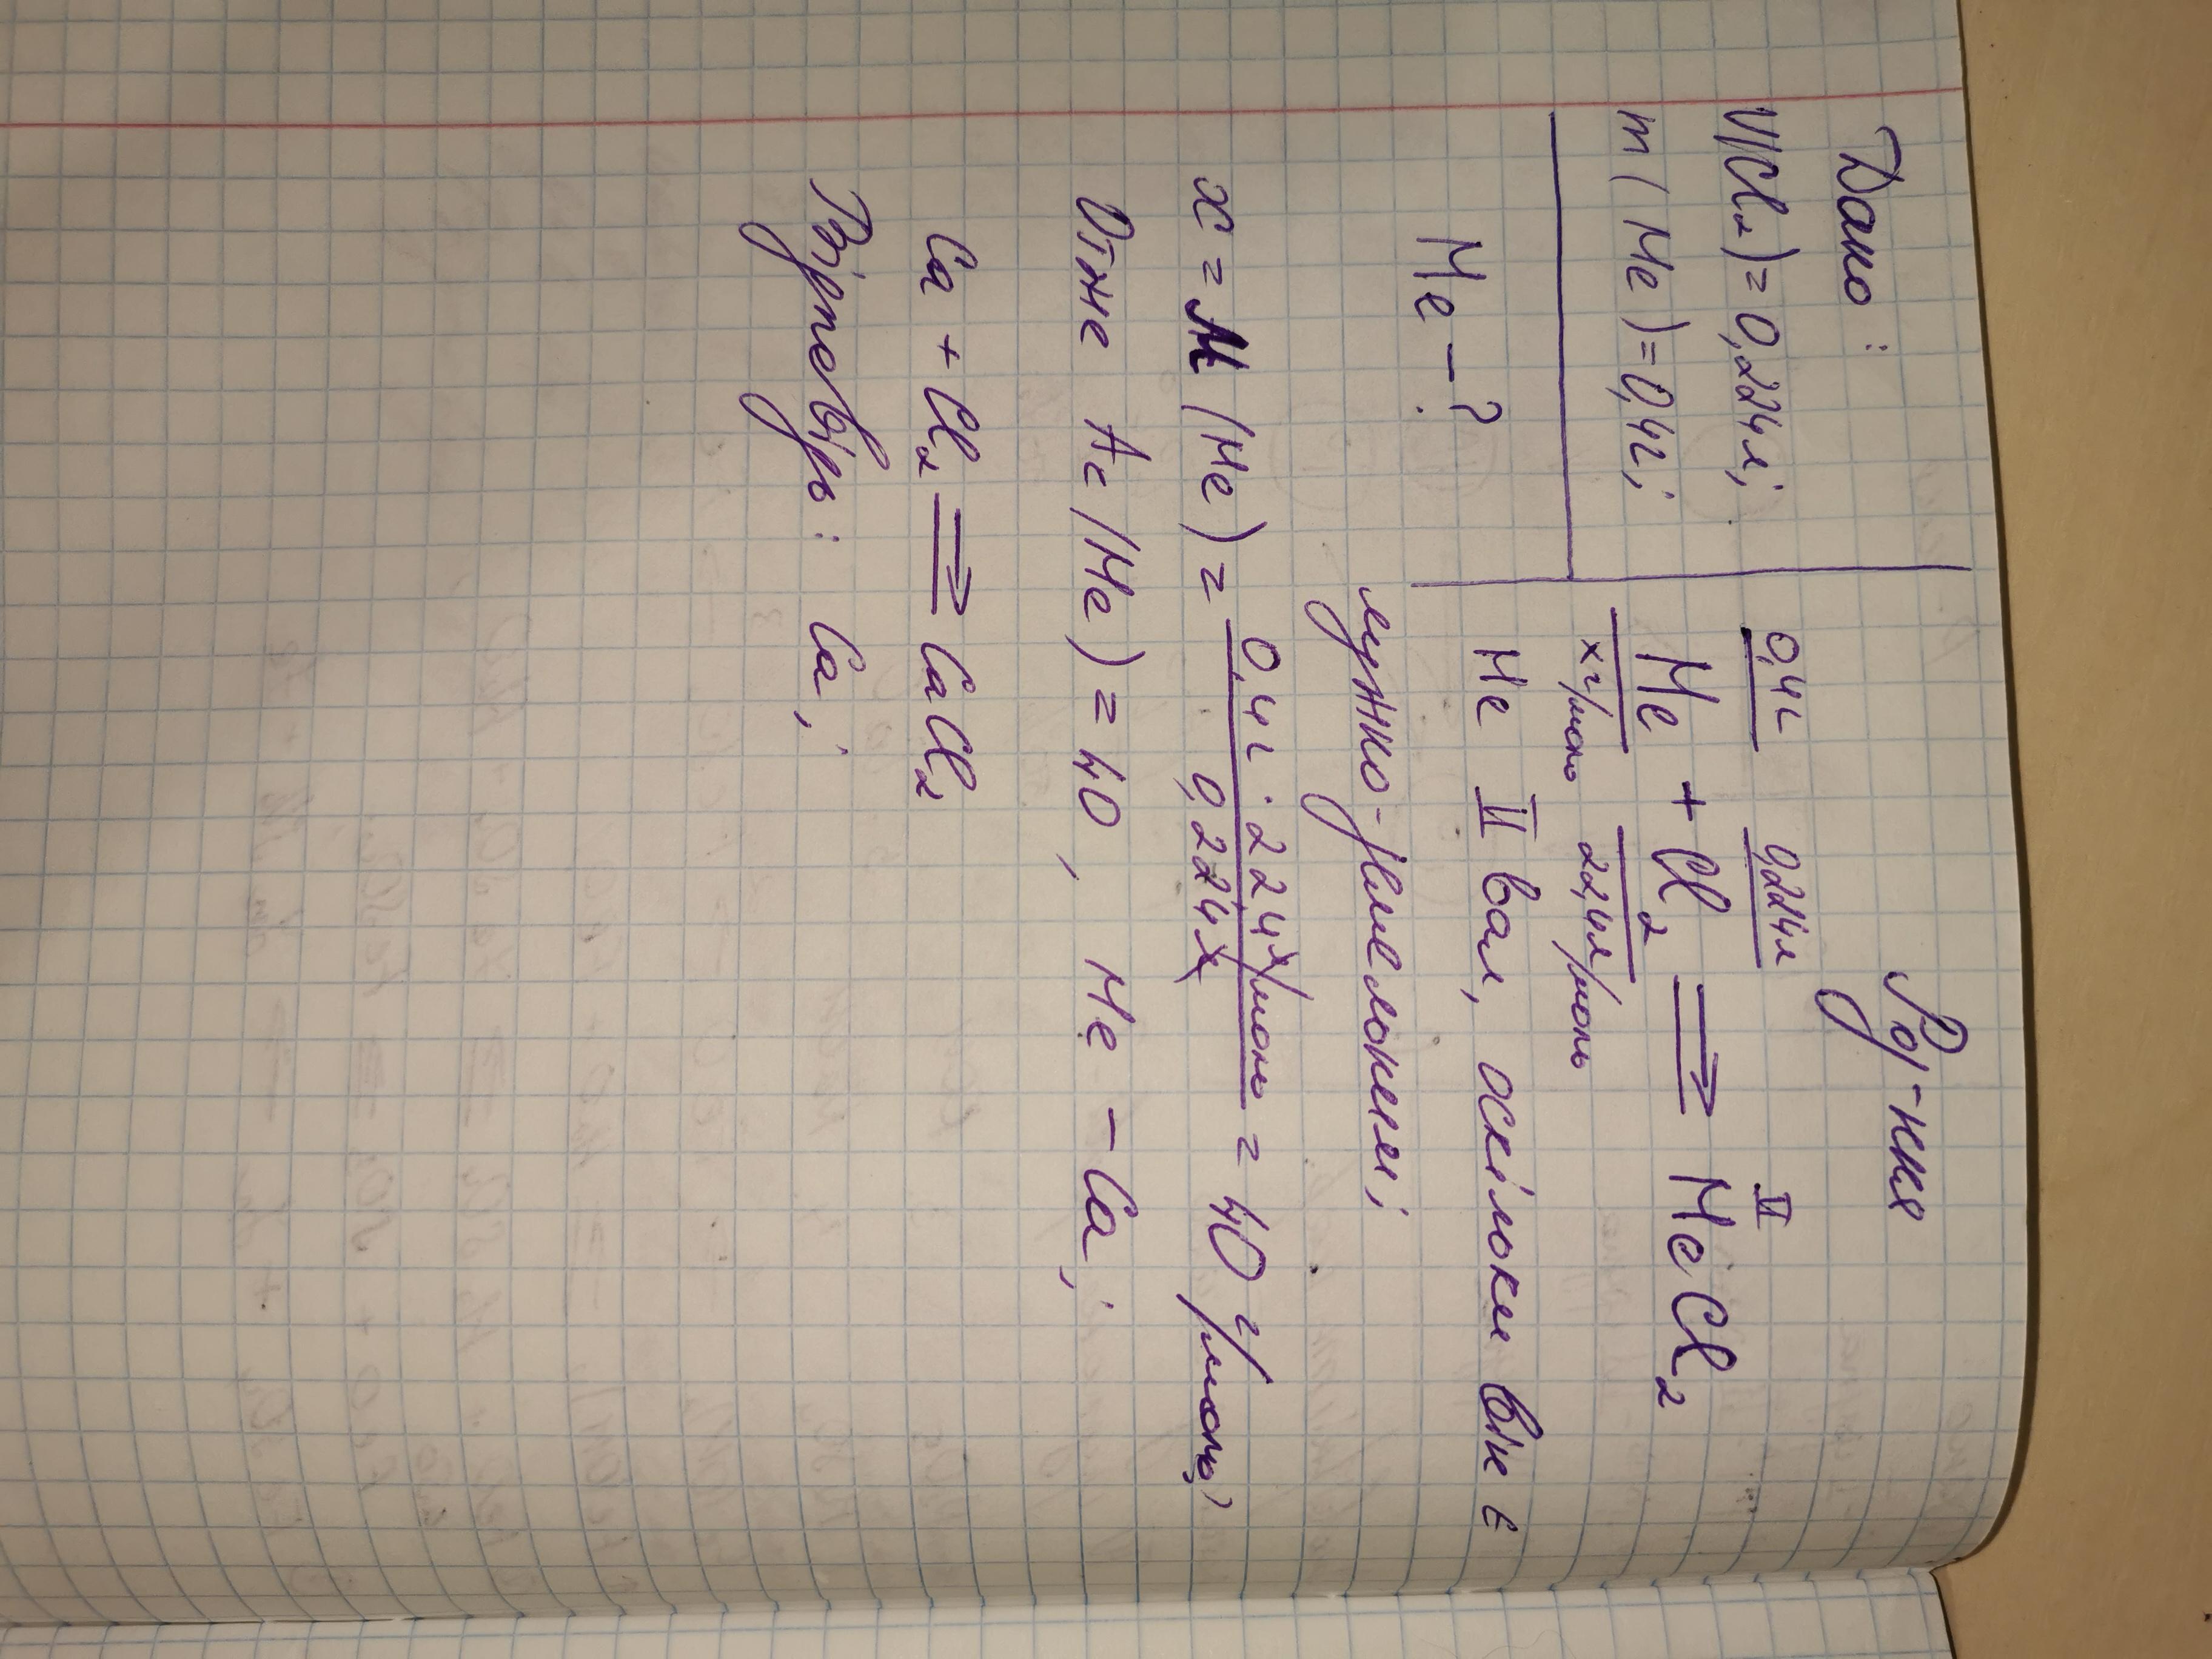 Дано:
V(Cl₂)=0,224л;
m(Me)=0,4г;
Me – ?
Розв-ння
0,4г 0,224л
II
Me + Cl₂ ⟹ MeCl₂
x г/моль 22,4л/моль
Me II вал, оскільки він є
лужно-земельним;
x = M(Me) = 0,4г · 22,4л/моль / 0,224л = 40 г/моль;
Отже Ar(Me) = 40, Me – Ca;
Ca + Cl₂ ⟹ CaCl₂
Відповідь: Ca;